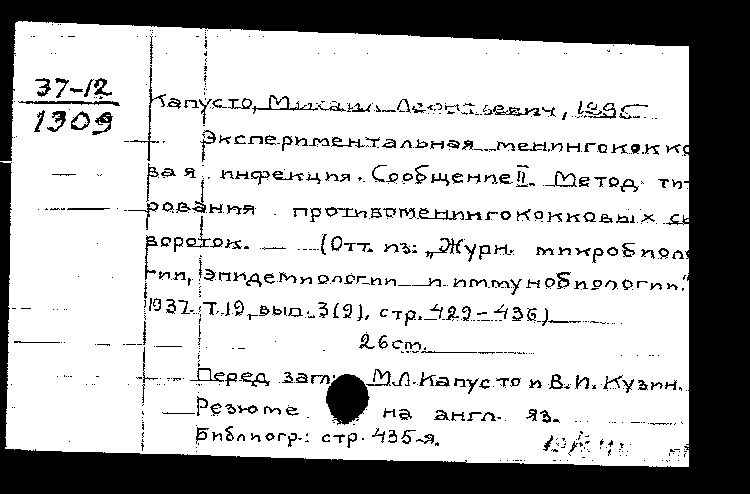 37-12
1309
Капусто, Михаил Леонтьевич, 1895
Экспериментальная менингококко
вая инфекция. Сообщение II. Метод тит
рования противоменингококковых сы
вороток. — (Отт. из: „Журн. микробиоло
гии, эпидемиологии и иммунобиологии."
1937. Т. 19, вып. 3(9), стр. 429-436)
26 cm.
Перед загл. М.Л. Капусто и В.И. Кузин.
Резюме на англ. яз.
Библиогр.: стр. 435-я.